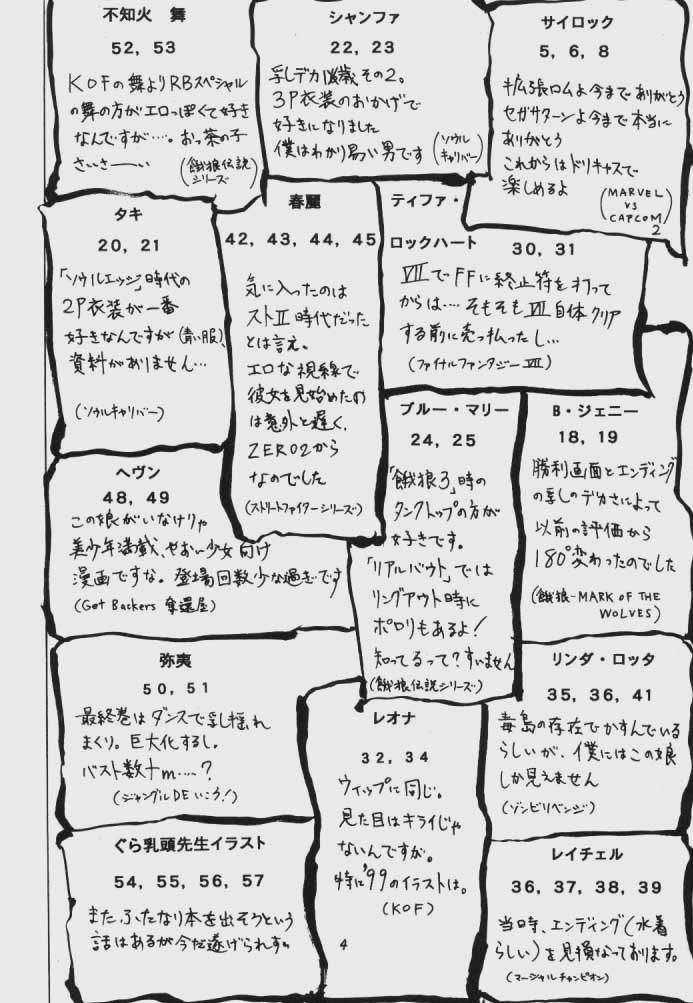 不知火　舞
52, 53
KOFの舞よりRBスペシャル
の舞の方がエロっぽくて好き
なんですが……。おっ茶の子
さいさーーい
(餓狼伝説
シリーズ)
シャンファ
22, 23
乳デカ18歳その2。
3P衣装のおかげで
好きになりました
僕はわかり易い男です
(ソウル
キャリバー)
サイロック
5, 6, 8
拡張ロムよ今までありがとう
セガサターンよ今まで本当に
ありがとう
これからはドリキャスで
楽しめるよ
(MARVEL
VS
CAPCOM)
2
タキ
20, 21
「ソウルエッジ」時代の
2P衣装が一番
好きなんですが(青い服)、
資料がありません…
(ソウルキャリバー)
春麗
42, 43, 44, 45
気に入ったのは
ストⅡ時代だった
とは言え、
エロな視線で
彼女を見始めたの
は意外と遅く、
ZERO2から
なのでした
(ストリートファイターシリーズ)
ティファ・
ロックハート
30, 31
ⅦでFFに終止符を打って
からは…. そもそもⅦ自体クリア
する前に売っ払ったし…
(ファイナルファンタジーⅦ)
ブルー・マリー
24, 25
「餓狼3」時の
タンクトップの方が
好きです。
「リアルバウト」では
リングアウト時に
ポロリもあるよ!
知ってるって?すいません
(餓狼伝説シリーズ)
B・ジェニー
18, 19
勝利画面とエンディング
の乳のデカさによって
以前の評価から
180°変わったのでした
(餓狼-MARK OF THE
WOLVES)
ヘヴン
48, 49
この娘がいなけりゃ
美少年満載、やおい少女向け
漫画ですな。登場回数少な過ぎです
(Get Backers 奪還屋)
弥夷
50, 51
最終巻はダンスで乳揺れ
まくり。巨大化するし。
バスト数十m……?
(ジャングルDEいこう!)
レオナ
32, 34
ウィップに同じ。
見た目はキライじゃ
ないんですが。
特に'99のイラストは。
(KOF)
リンダ・ロッタ
35, 36, 41
毒島の存在でかすんでいる
らしいが、僕にはこの娘
しか見えません
(ゾンビリベンジ)
ぐら乳頭先生イラスト
54, 55, 56, 57
また、ふたなり本を出そうという
話はあるが今だ遂げられず。
レイチェル
36, 37, 38, 39
当時、エンディング(水着
らしい)を見損なっております。
(マーシャルチャンピオン)
4